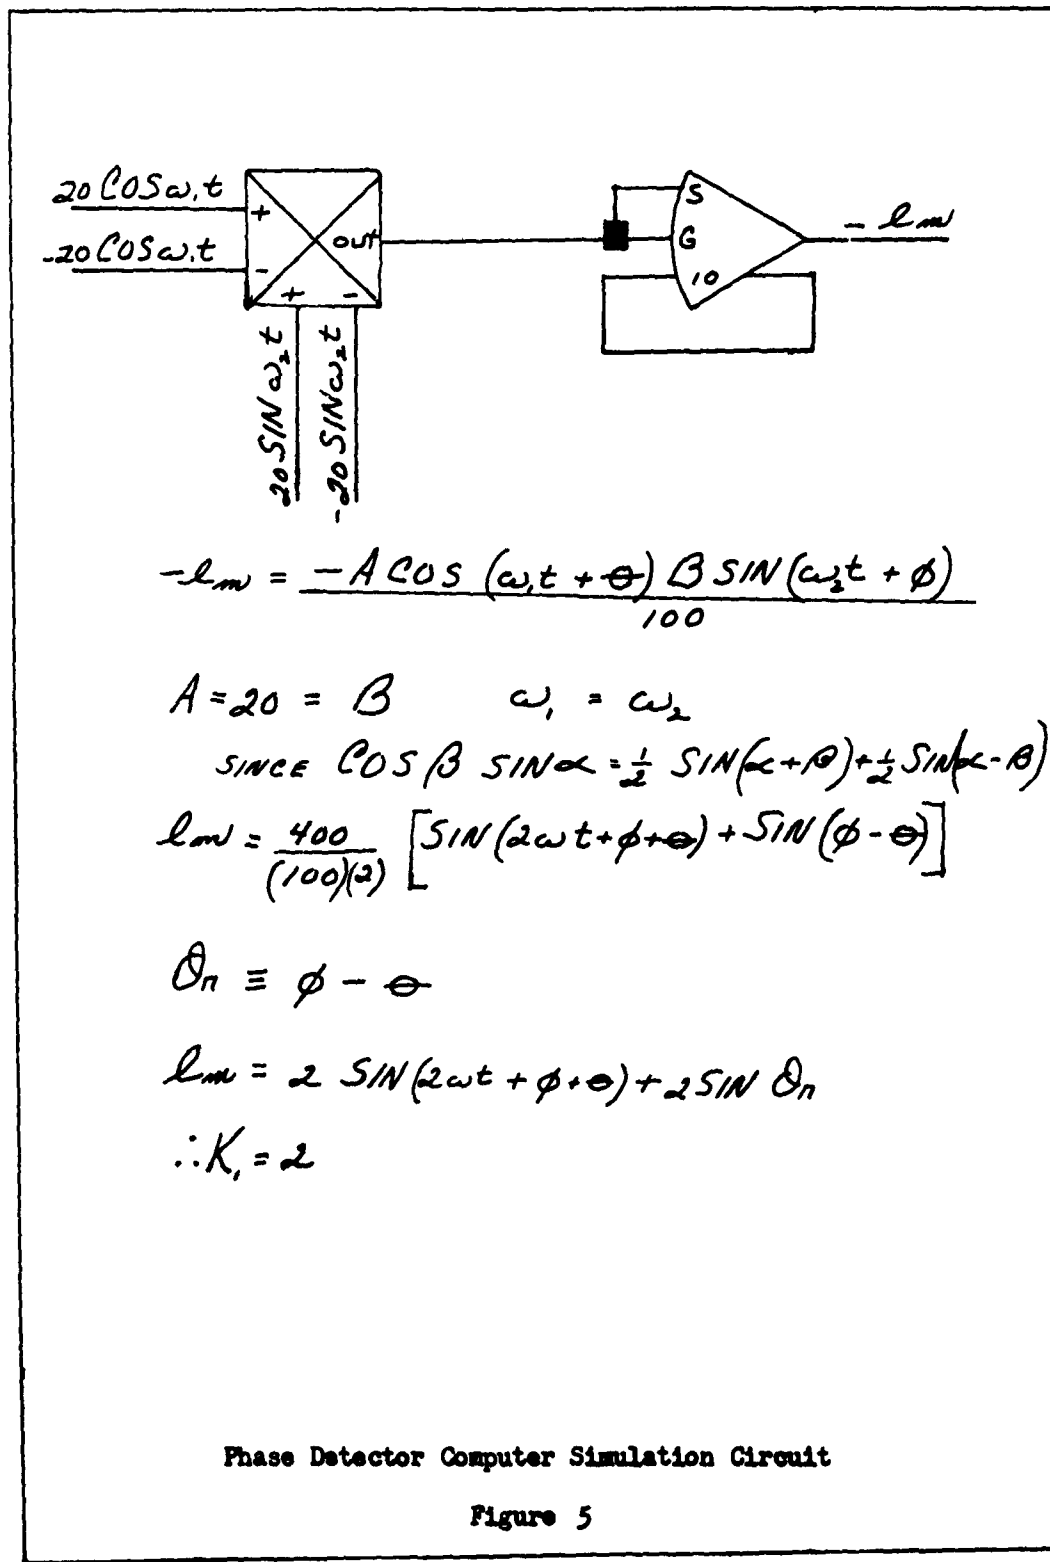 20 COS ω₁t
-20 COS ω₁t
+
-
out
+ -
20 SIN ω₂t
-20 SIN ω₂t
S
G
10
- em
-em = -A COS (ω₁t + θ) B SIN(ω₂t + ϕ)
100
A = 20 = B ω₁ = ω₂
SINCE COS β SIN α = ½ SIN(α+β)+½ SIN(α-β)
em = 400/(100)(2) [SIN(2ωt+ϕ+θ)+SIN(ϕ-θ)]
θn ≡ ϕ - θ
em = 2 SIN(2ωt + ϕ+θ)+2 SIN θn
∴K₁ = 2
Phase Detector Computer Simulation Circuit
Figure 5